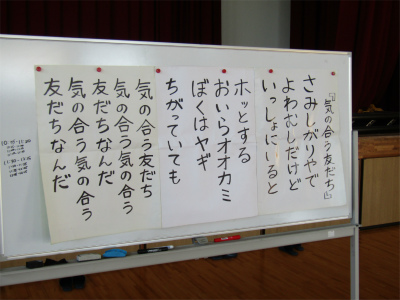 『気の合う友だち』
さみしがりやで
よわむしだけど
いっしょにいると
ホッとする
おいらオオカミ
ぼくはヤギ
ちがっていても
気の合う友だち
気の合う気の合う
友だちなんだ
気の合う気の合う
友だちなんだ